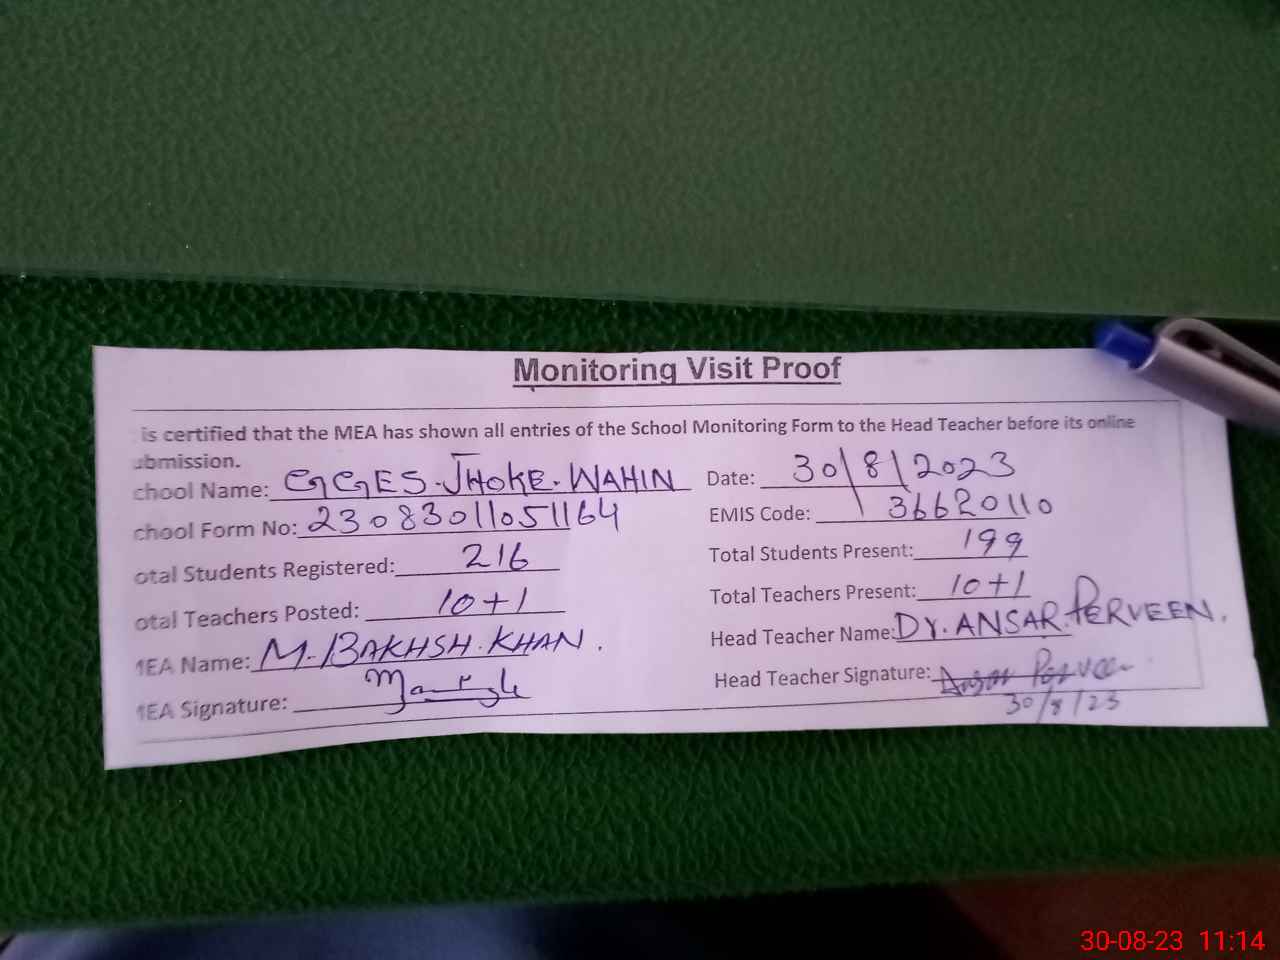 Monitoring Visit Proof
is certified that the MEA has shown all entries of the School Monitoring Form to the Head Teacher before its online
ubmission.
chool Name: GGES.JHOKE.WAHIN Date: 30/8/2023
chool Form No: 23083011051164 EMIS Code: 36620110
otal Students Registered: 216 Total Students Present: 199
otal Teachers Posted: 10+1 Total Teachers Present: 10+1
MEA Name: M.BAKHSH.KHAN. Head Teacher Name: DY.ANSAR.PERVEEN.
MEA Signature: Head Teacher Signature: Ansar Perveen
30/8/23
30-08-23 11:14